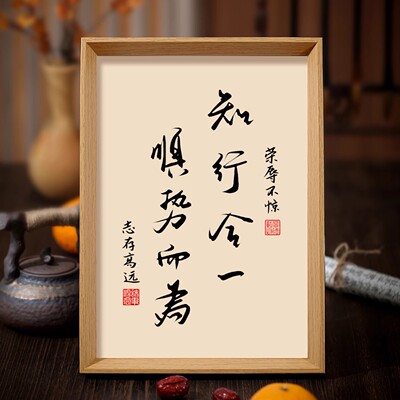 荣辱不惊
知行合一
順势而為
志存高远